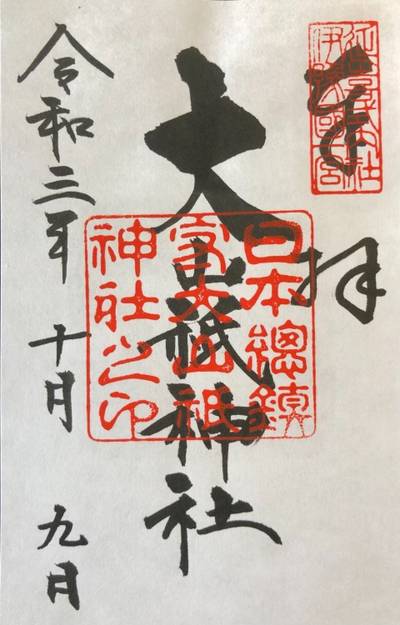 奉拝
伊豫国一宮
大山祇神社
日本總鎮
守大山祇
神社之印
令和三年 十月 九日